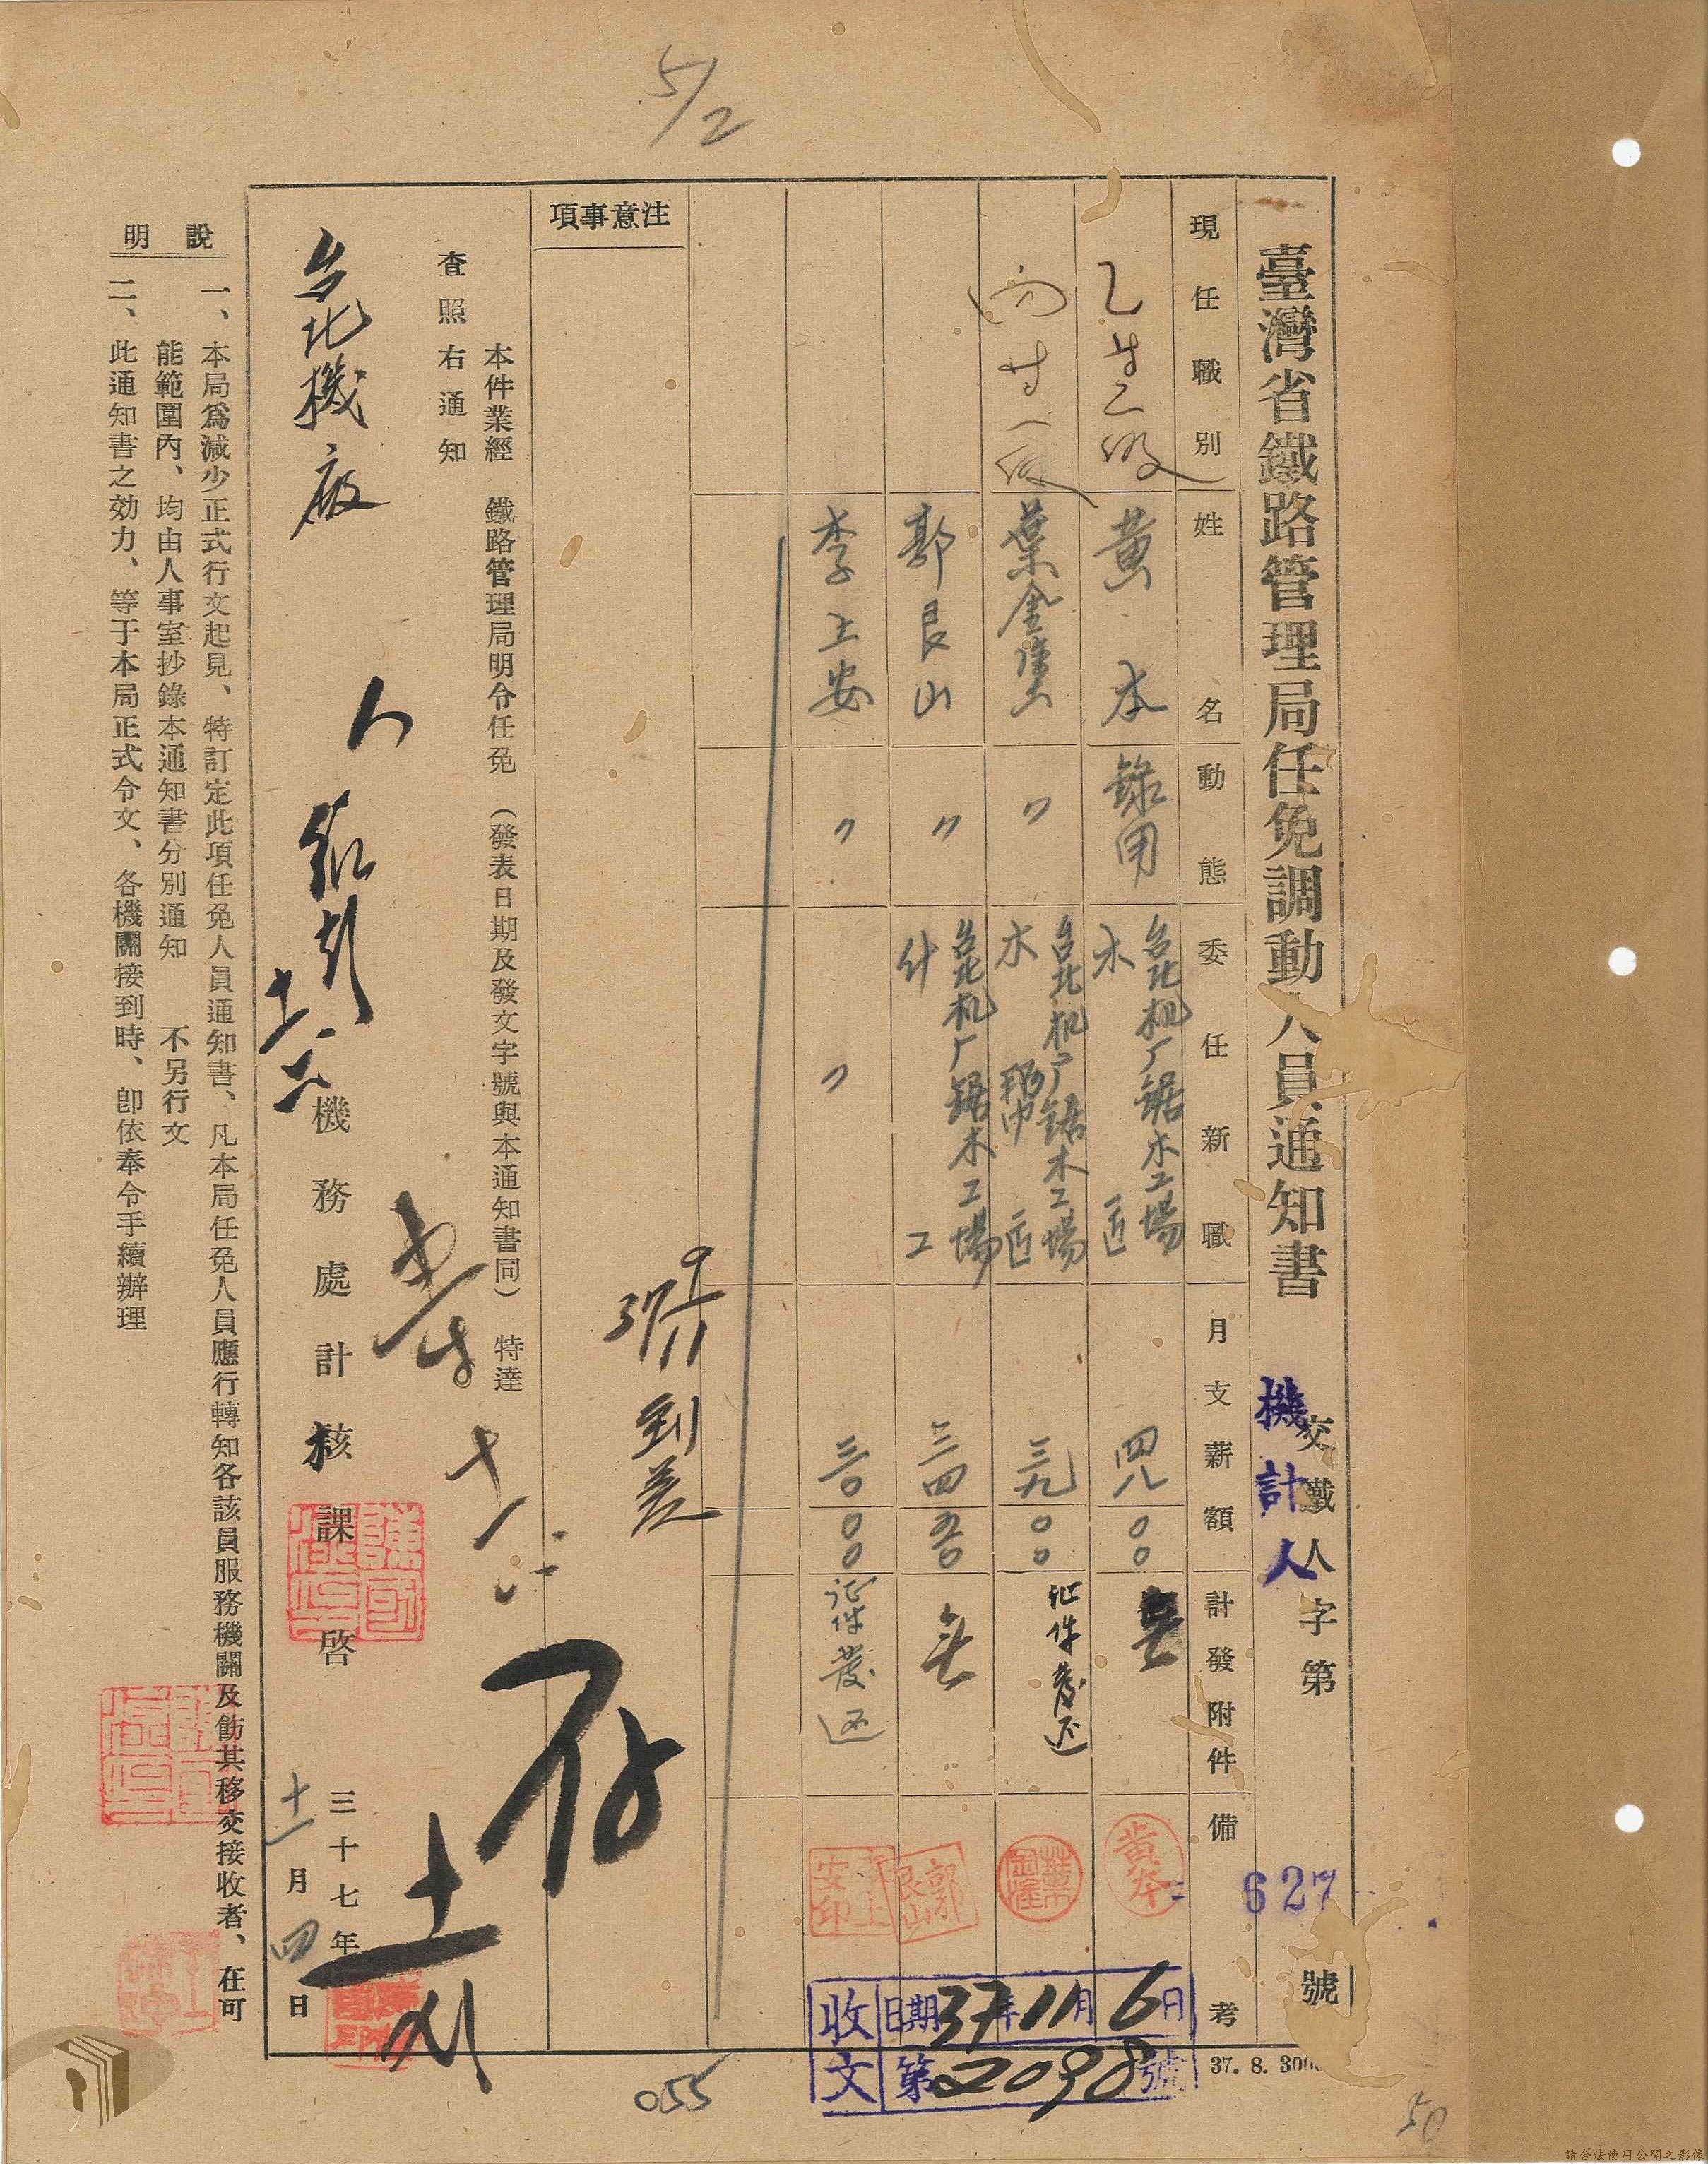 5/2
臺灣省鐵路管理局任免調動人員通知書
交鐵人字第
機計人
627
號
現任職別
姓名
動態
委任新職
月支薪額
計發附件
備考
黃本
錄用
台北机厂鋸木工場
木匠
四八
〇〇
無
黃本
葉金
〃
台北机厂鋸木工場
木匠
三九
〇〇
证件發还
郭良山
〃
台北机厂鋸木工場
什工
三四
五〇
無
郭良山
李上安
〃
〃
三〇
〇〇
证件發还
李上安印
注意事項
37
11
到差
本件業經 鐵路管理局明令任免 (發表日期及發文字號與本通知書同) 特達
查照右通知
台北機廠
機務處計核課啓
存
三十七年
十一月四日
說明
一、本局爲減少正式行文起見、特訂定此項任免人員通知書、凡本局任免人員應行轉知各該員服務機關及飭其移交接收者、在可
能範圍內、均由人事室抄錄本通知書分別通知 不另行文
二、此通知書之効力、等于本局正式令文、各機關接到時、卽依奉令手續辦理
收文
日期37年11月6日
第2098號
37. 8. 300
055
50
請合法使用公開之影像